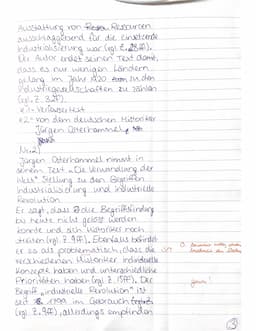 Ausstattung von Ressourcen
ausschlaggebend für die einsetzende
Industrialisierung war (vgl. Z. 28ff).
Der Autor endet seinen Text damit,
dass es nur wenigen Ländern
gelang im Jahr 1920 zu den
Industriegesellschaften zu zählen
(vgl. Z. 32f).
*1 = Verfassertext
*2 = von dem deutschen Historiker
Jürgen Osterhammel
Nr. 2)
Jürgen Osterhammel nimmt in
seinem Text „Die Verwandlung der
Welt" Stellung zu den Begriffen
Industrialisierung und industrielle
Revolution.
Er sagt, dass die Begriffsfindung
bis heute nicht gelöst werden
konnte und sich Historiker noch
streiten (vgl. Z. 9ff). Ebenfalls befindet
er es als problematisch, dass die
verschiedenen Historiker individuelle
Konzepte haben und unterschiedliche
Prioritäten haben (vgl. Z. 15ff). Der
Begriff „industrielle Revolution" ist
seit 1799 im Gebrauch
(vgl. Z. 9ff), allerdings empfinden
genau!
3